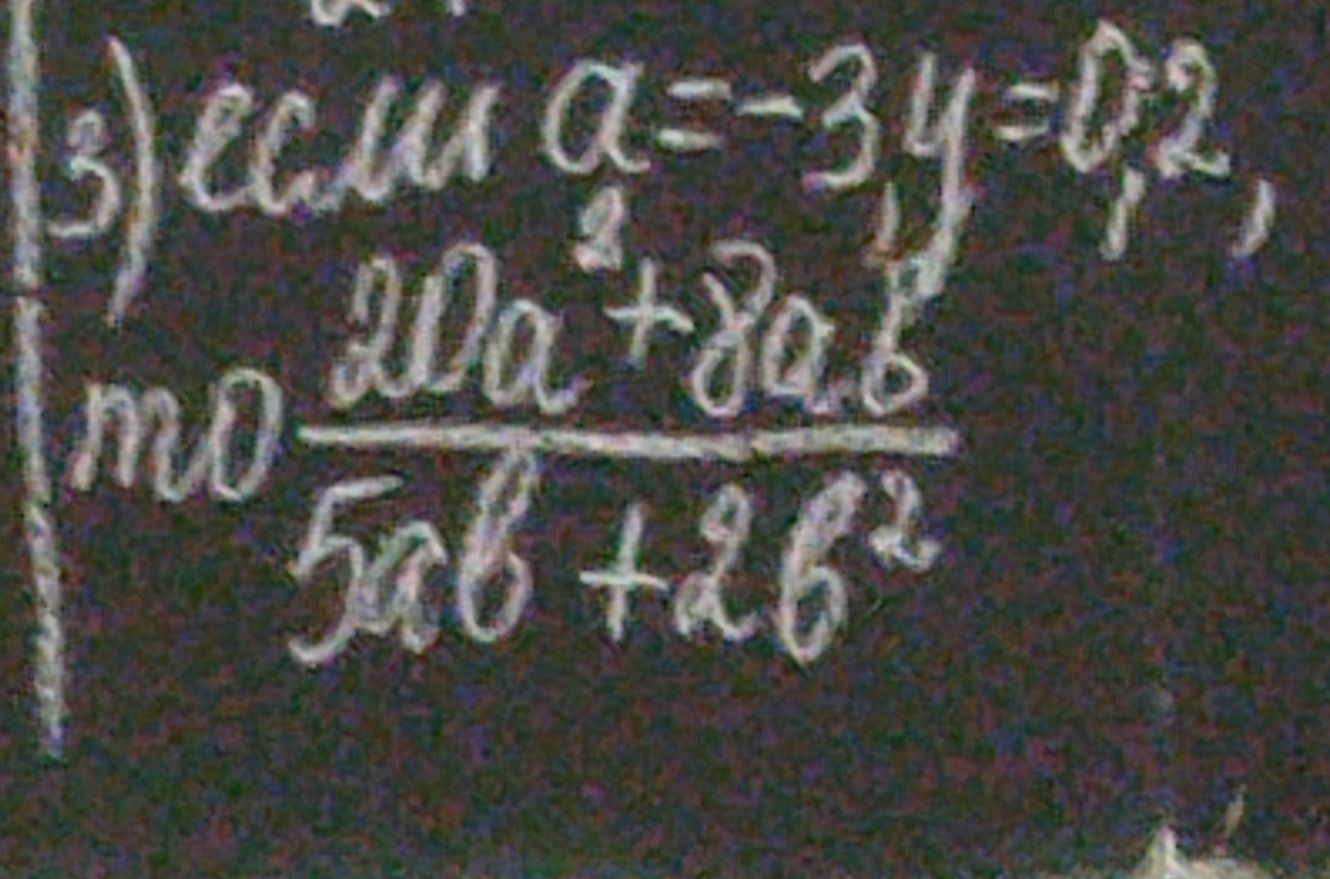 3) если a=-3, y=0,2,
то (20a²+8ab)/(5ab+2b²)